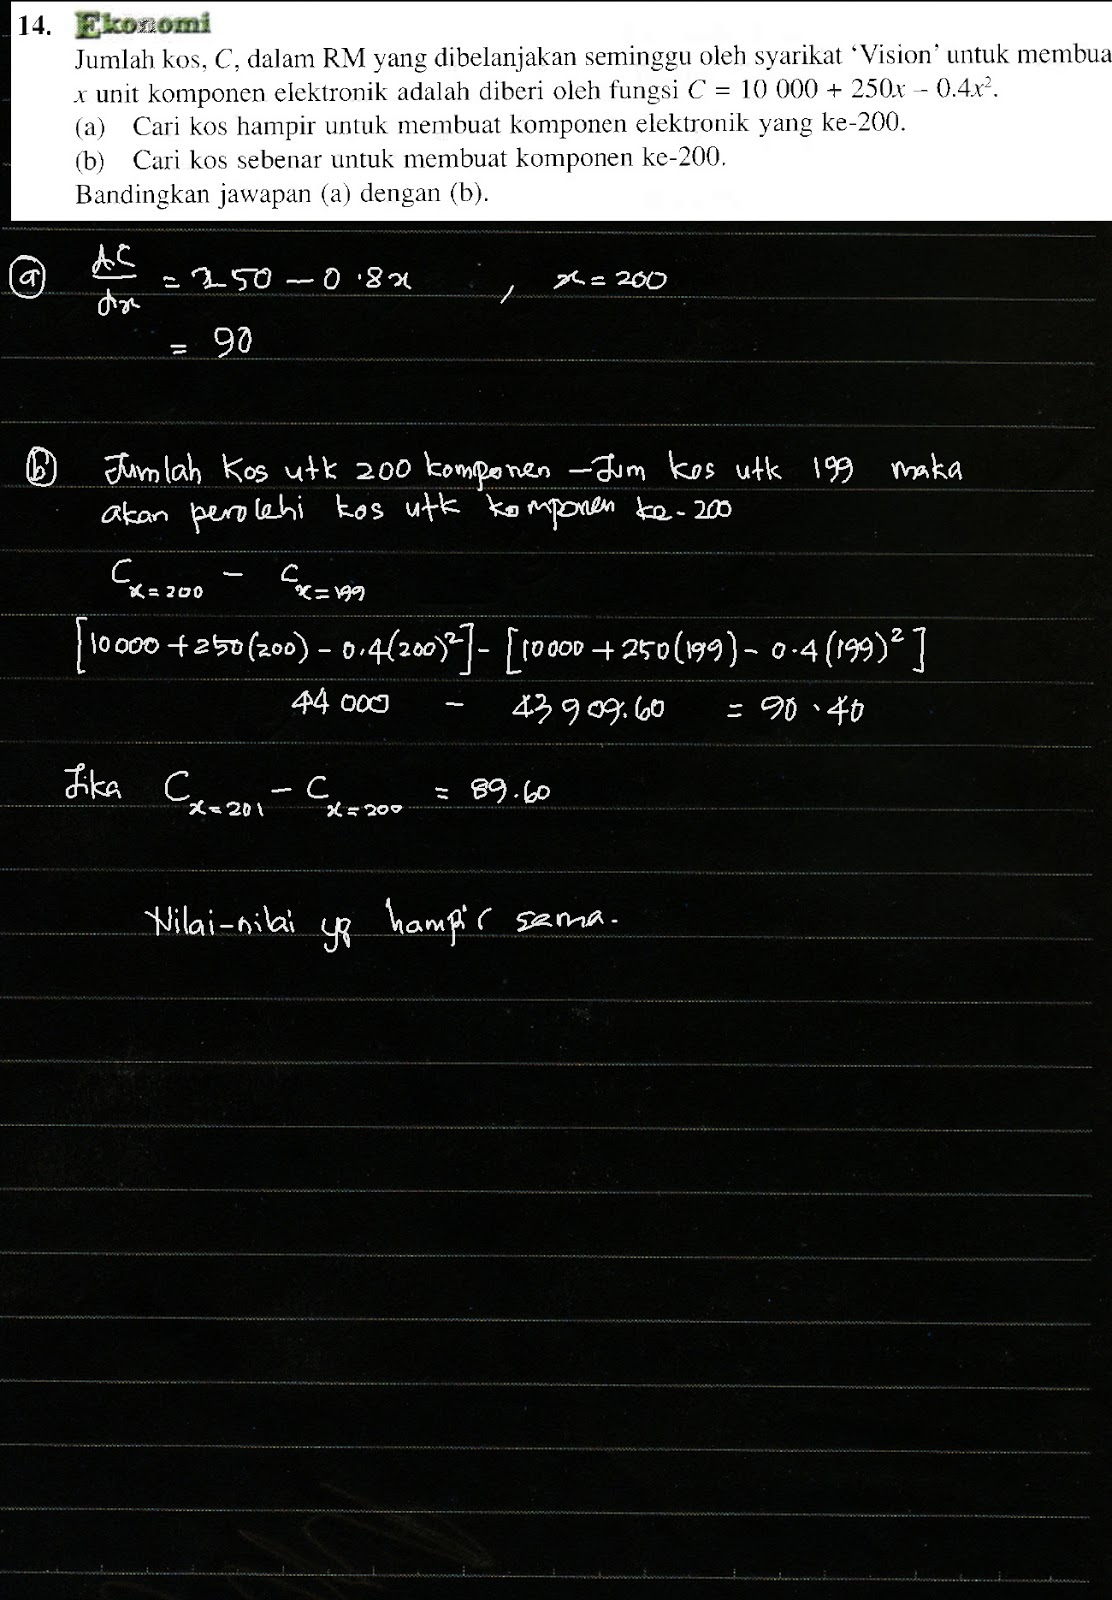 14. Ekonomi
Jumlah kos, C, dalam RM yang dibelanjakan seminggu oleh syarikat ‘Vision’ untuk membua
x unit komponen elektronik adalah diberi oleh fungsi C = 10 000 + 250x – 0.4x².
(a) Cari kos hampir untuk membuat komponen elektronik yang ke-200.
(b) Cari kos sebenar untuk membuat komponen ke-200.
Bandingkan jawapan (a) dengan (b).
(a) dC/dx = 250 – 0.8x , x = 200
= 90
(b) Jumlah kos utk 200 komponen – Jum kos utk 199 maka
akan perolehi kos utk komponen ke-200
C x=200 – C x=199
[10000 + 250(200) – 0.4(200)²] – [10000 + 250(199) – 0.4(199)²]
44 000 – 43 909.60 = 90.40
Jika C x=201 – C x=200 = 89.60
Nilai-nilai yg hampir sama.